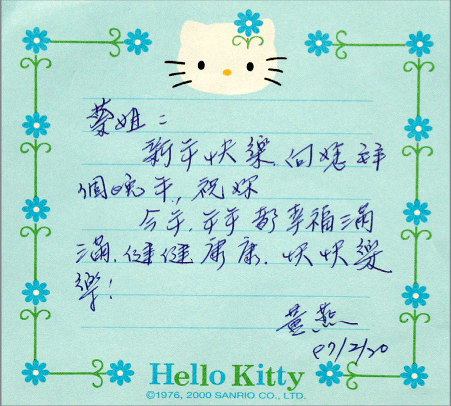 姐：
新年快樂.向 拜
個晚年,祝妳
今年,年年都幸福滿
滿.健健康康.快快樂
樂!
燕
07/2/20
Hello Kitty
©1976, 2000 SANRIO CO., LTD.